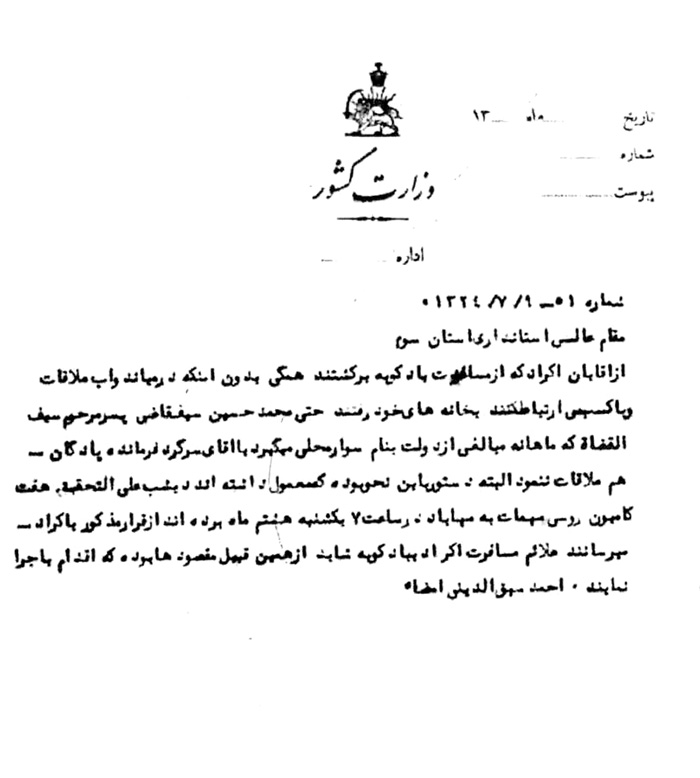 تاریخ ماه ۱۳
شماره
پیوست
وزارت کشور
اداره
شماره ۵۱ـ ۱۳۲۴/۷/۹
مقام عالی استانداری استان سوم
از اقایان اکراد که از مسافرت باد کوبه برگشتند همگی بدون اینکه در میاند واب ملاقات
ویاکسی ارتباط کنند بخانه های خود رفتند حتی محمد حسین سیف قاضی پسر مرحوم سیف
القضاة که ماهانه مبالغی از دولت بنام سوار محلی میگیرد با اقای سرگرد فرمانده پادگان ـ
هم ملاقات ننمود البته دستور باین نحو بوده که معمول داشته اند دیشب علی التحقیق هفت
کامیون روسی مهمات به مهاباد در ساعت ۷ یکشنبه هشتم ماه برده اند از قرار مذکور باکراد ـ
میرسانند علائم مسافرت اکراد بباد کوبه شاید از همین قبیل مقصود ها بوده که اقدام باجرا
نمایند ۰ احمد امضاء